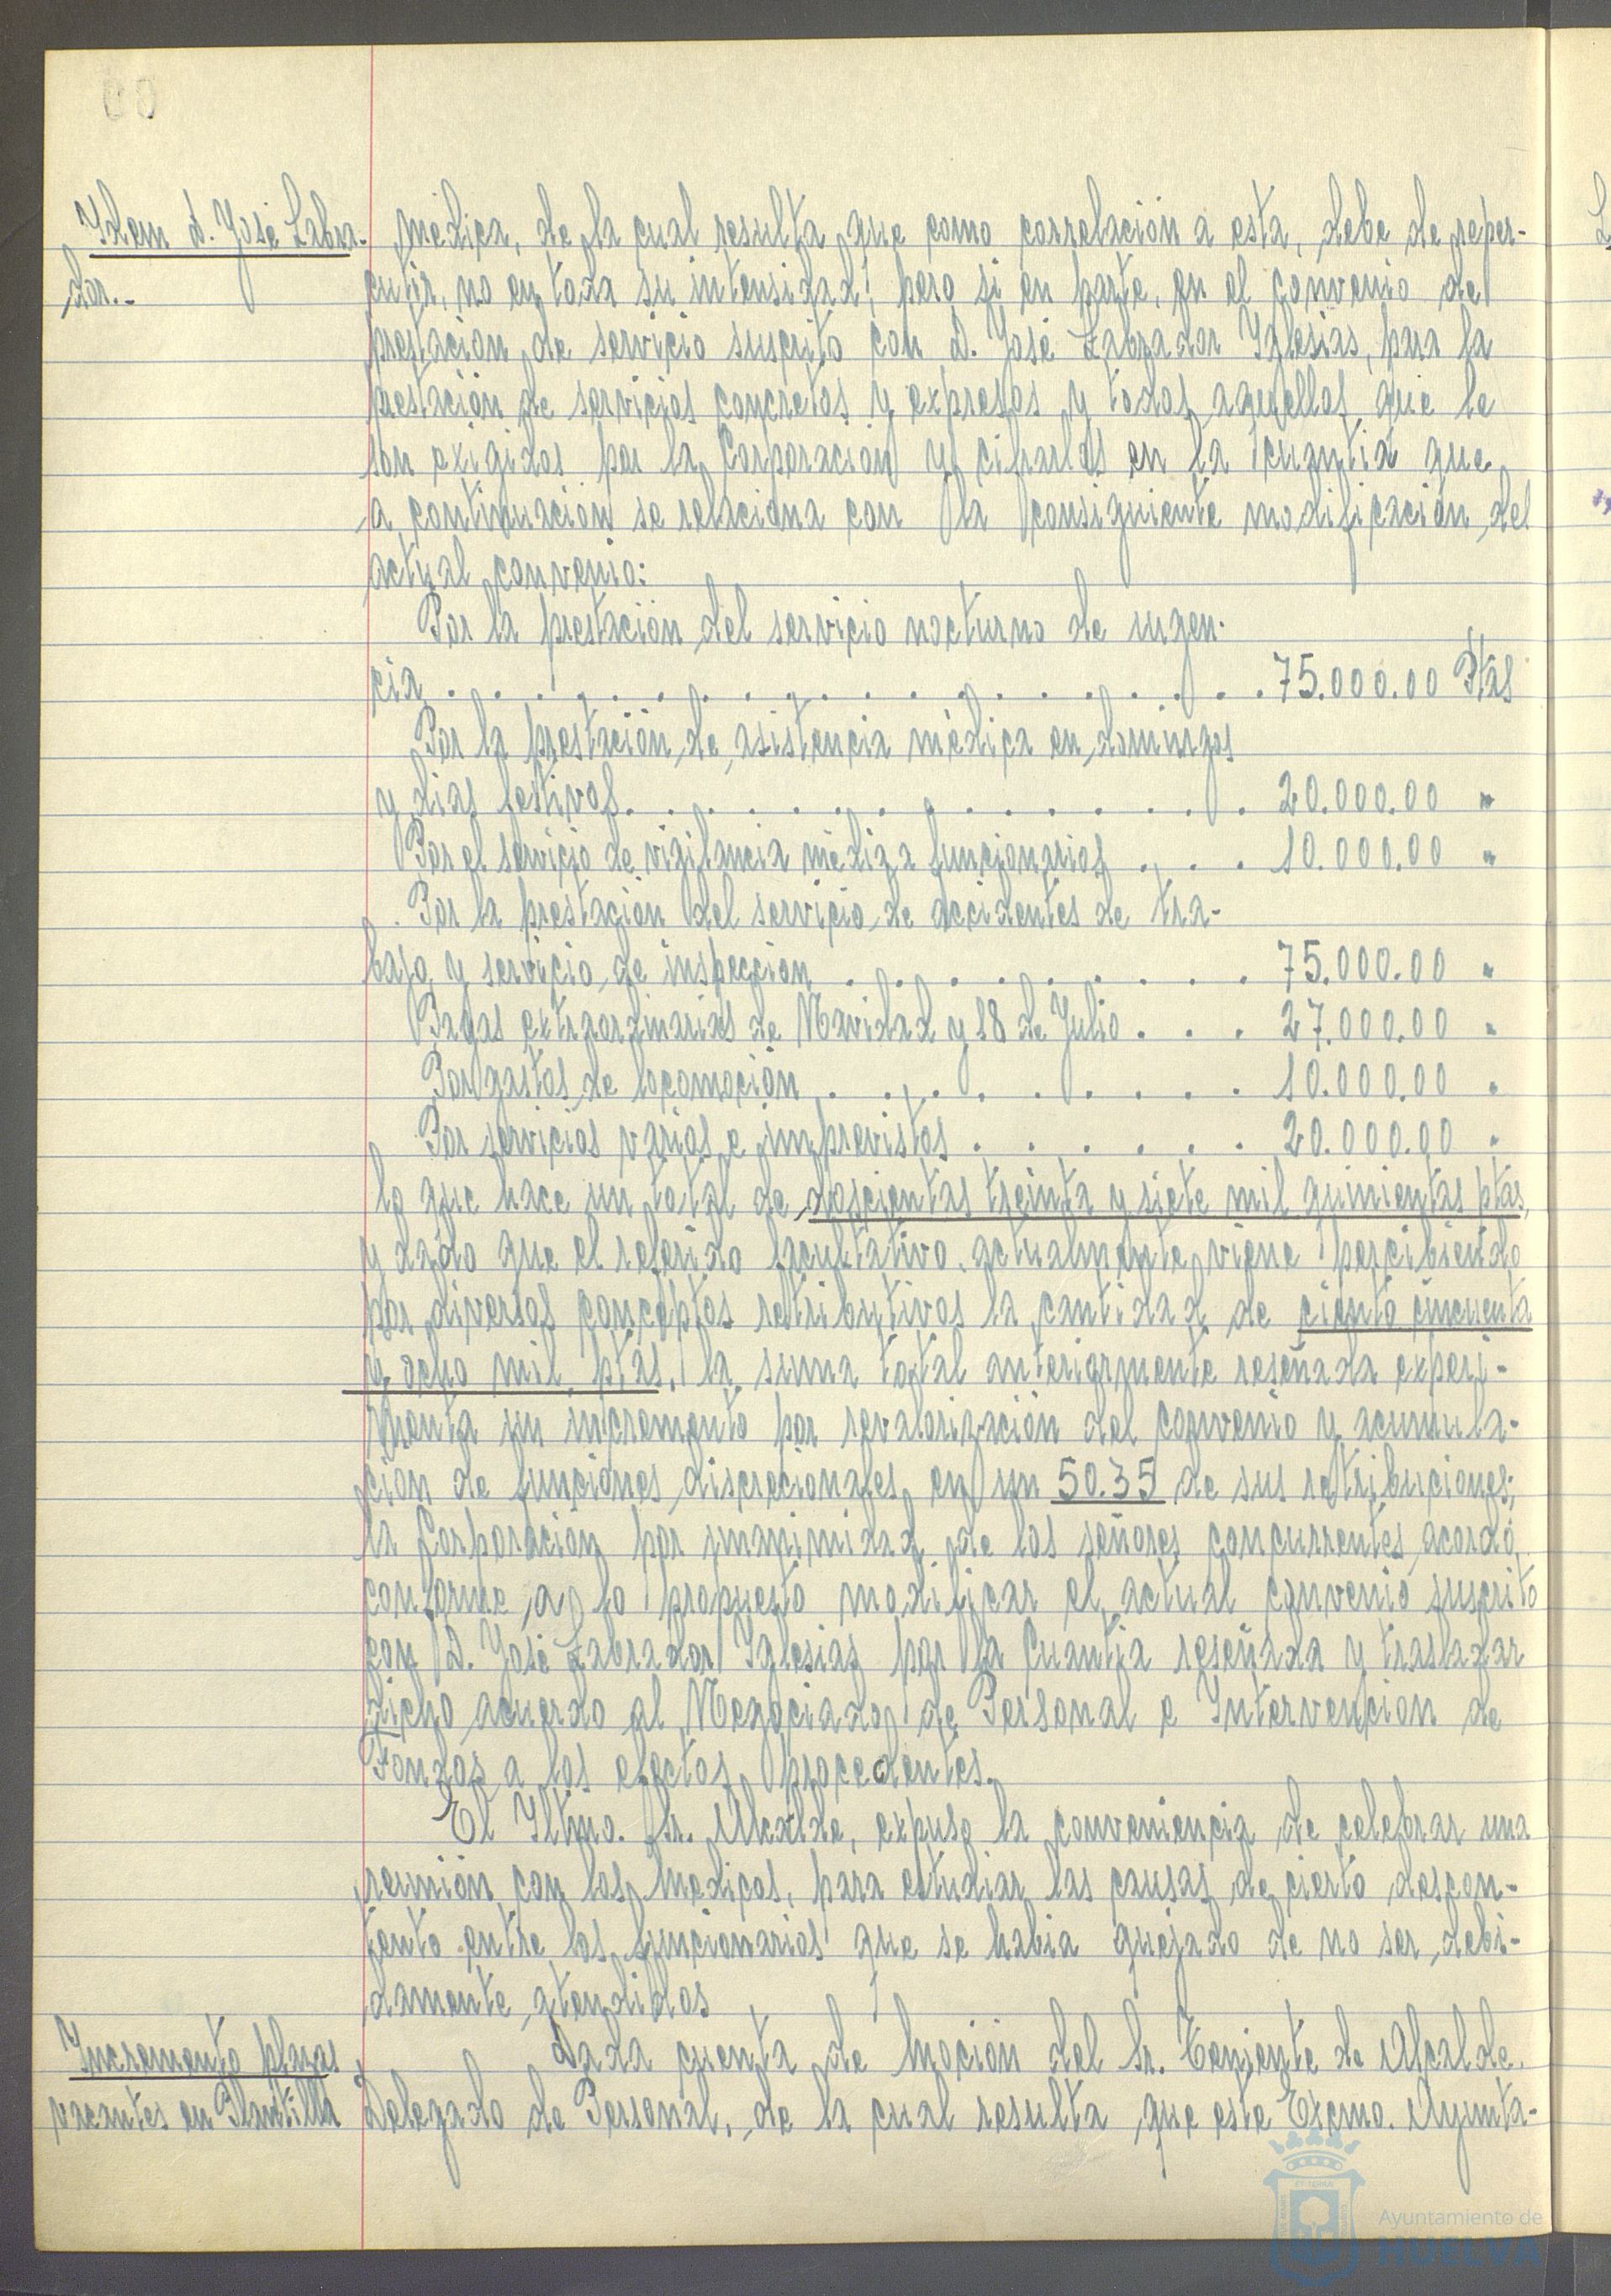 Idem D. José Labra-
dor.-
médica, de la cual resulta que como correlación a esta, debe de reper-
cutir, no en toda su intensidad, pero si en parte, en el convenio de
prestación de servicio suscrito con D. José Labrador Iglesias, para la
prestación de servicios concretos y expresos y todos aquellos que le
son exigidos por la Corporación y cifrarlos en la cuantia que
a continuación se relaciona con la consiguiente modificación del
actual convenio:
Por la prestación del servicio nocturno de urgen-
cia . . . . . . . . . . . . . . . . . . 75.000.00 Ptas
Por la prestación de asistencia médica en domingos
y dias festivos. . . . . . . . . . . . . . . 20.000.00 "
Por el servicio de vigilancia médica a funcionarios . . . 10.000.00 "
Por la prestación del servicio de accidentes de tra-
bajo y servicio de inspección . . . . . . . . . 75.000.00 "
Pagas extraordinarias de Navidad y 18 de Julio . . . 27.000.00 "
Por gastos de locomoción . . . . . . . . . 10.000.00 "
Por servicios varios e imprevistos . . . . . . 20.000.00 "
lo que hace un total de doscientas treinta y siete mil quinientas ptas,
y dado que el referido facultativo, actualmente viene percibiendo
por diversos conceptos retributivos la cantidad de ciento cincuenta
y ocho mil ptas, la suma total anteriormente reseñada experi-
menta un incremento por revalorización del convenio y acumula-
ción de funciones discrecionales en un 50.35 de sus retribuciones;
la Corporación por unanimidad de los señores concurrentes acordó,
conforme a lo propuesto modificar el actual convenio suscrito
con D. José Labrador Iglesias por la Cuantia reseñada y trasladar
dicho acuerdo al Negociado de Personal e Intervención de
Fondos a los efectos procedentes.
El Iltmo. Sr. Alcalde, expuso la conveniencia de celebrar una
reunión con los médicos, para estudiar las causas de cierto descon-
tento entre los funcionarios que se habia quejado de no ser debi-
damente atendidos
Incremento plazas
vacantes en Plantilla
Dada cuenta de moción del Sr. Teniente de Alcalde,
Delegado de Personal, de la cual resulta que este Excmo. Ayunta-
Ayuntamiento de
HUELVA